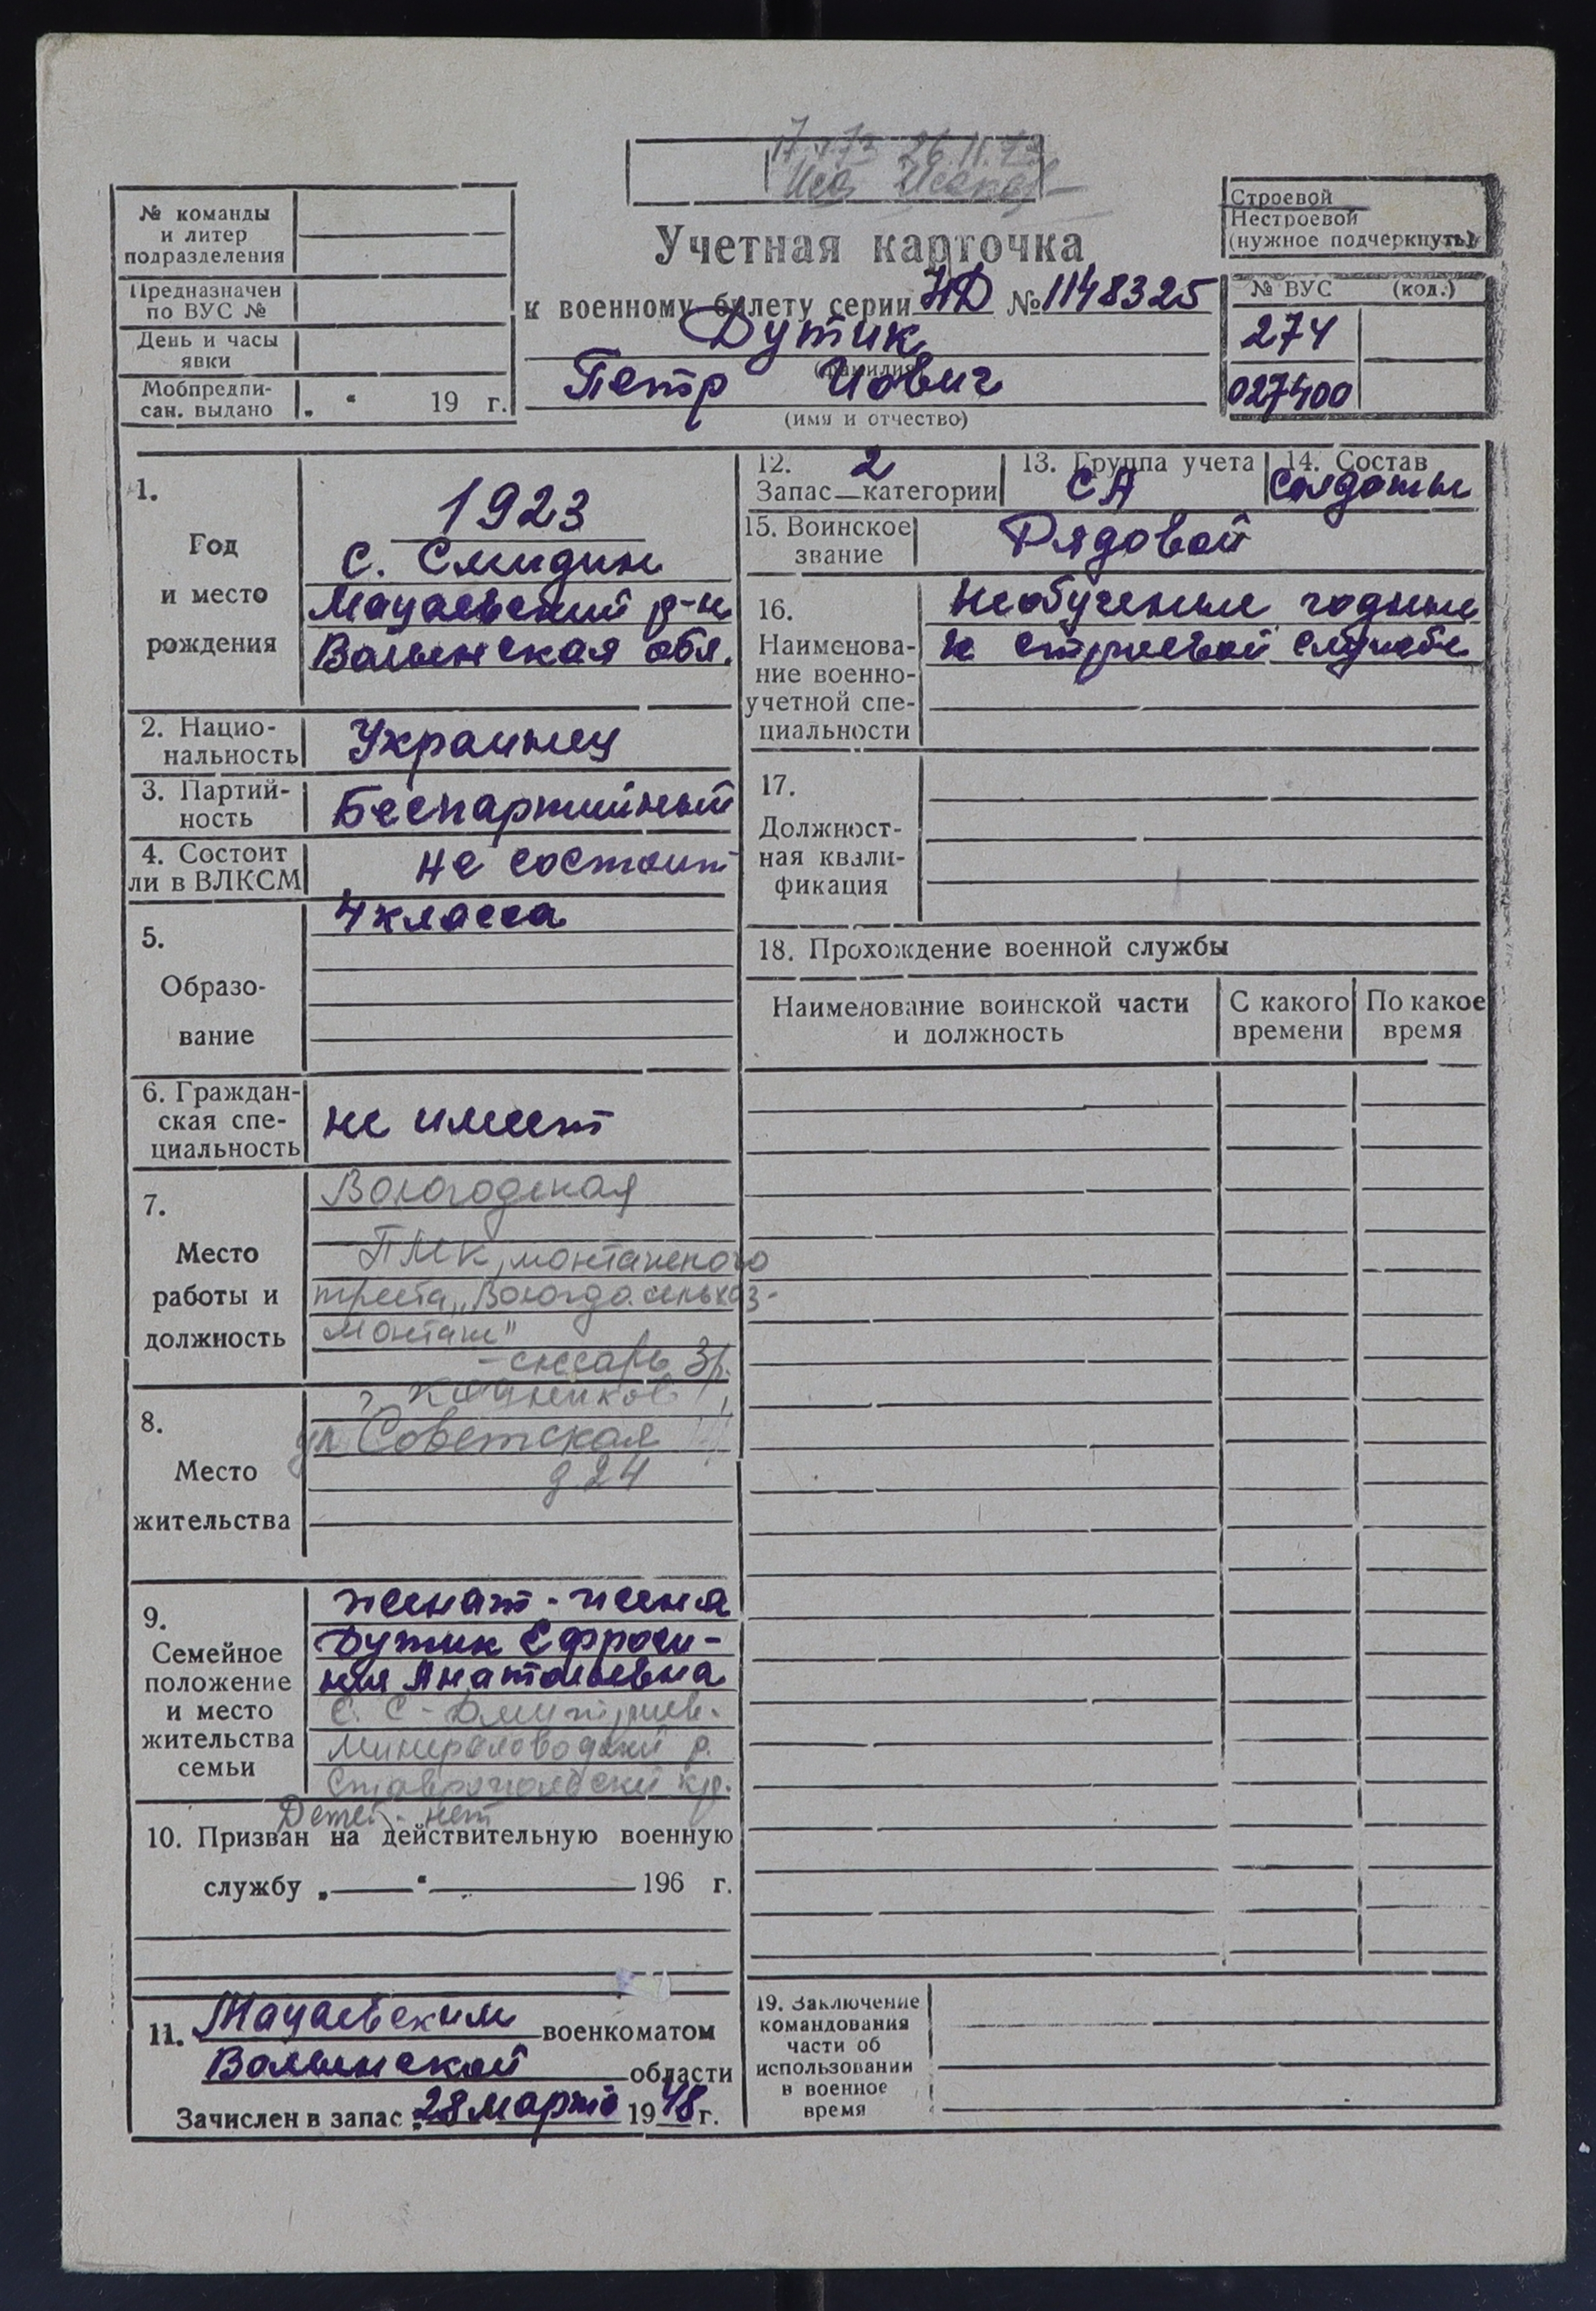 17.1.73 26.11.73
Строевой
Нестроевой
(нужное подчеркнуть)
№ команды
и литер
подразделения
Предназначен
по ВУС №
День и часы
явки
Мобпредпи-
сан. выдано „ “ 19 г.
Учетная карточка
к военному билету серии НД № 1148325
Дутик
(фамилия)
Петр Иович
(имя и отчество)
№ ВУС (код.)
274
027400
1.
Год
и место
рождения
1923
с. Смидин
Мацаевский р-н
Волынская обл.
2. Нацио-
нальность Украинец
3. Партий-
ность Беспартийный
4. Состоит
ли в ВЛКСМ не состоит
5.
Образо-
вание
4 класса
6. Граждан-
ская спе-
циальность
не имеет
7.
Место
работы и
должность
Вологодская
ПМК, монтажного
треста „Вологдасельхоз-
монтаж"
- слесарь 3р.
8.
Место
жительства
г. Кадников
ул Советская
д 24
9.
Семейное
положение
и место
жительства
семьи
женат - жена
Дутик Ефроси-
ния Анатольевна
С. С-Дмитриев.
Минераловодский р.
Ставропольский кр.
Детей - нет
10. Призван на действительную военную
службу „ “ 196 г.
11. Мацаевским военкоматом
Волынской области
Зачислен в запас „28 марта 1948 г.
12. 2
Запас категории
13. Группа учета
СА
14. Состав
солдаты
15. Воинское
звание
Рядовой
16.
Наименова-
ние военно-
учетной спе-
циальности
Необученные годные
к строевой службе
17.
Должност-
ная квали-
фикация
18. Прохождение военной службы
Наименование воинской части
и должность
С какого
времени
По какое
время
19. Заключение
командования
части об
использовании
в военное
время